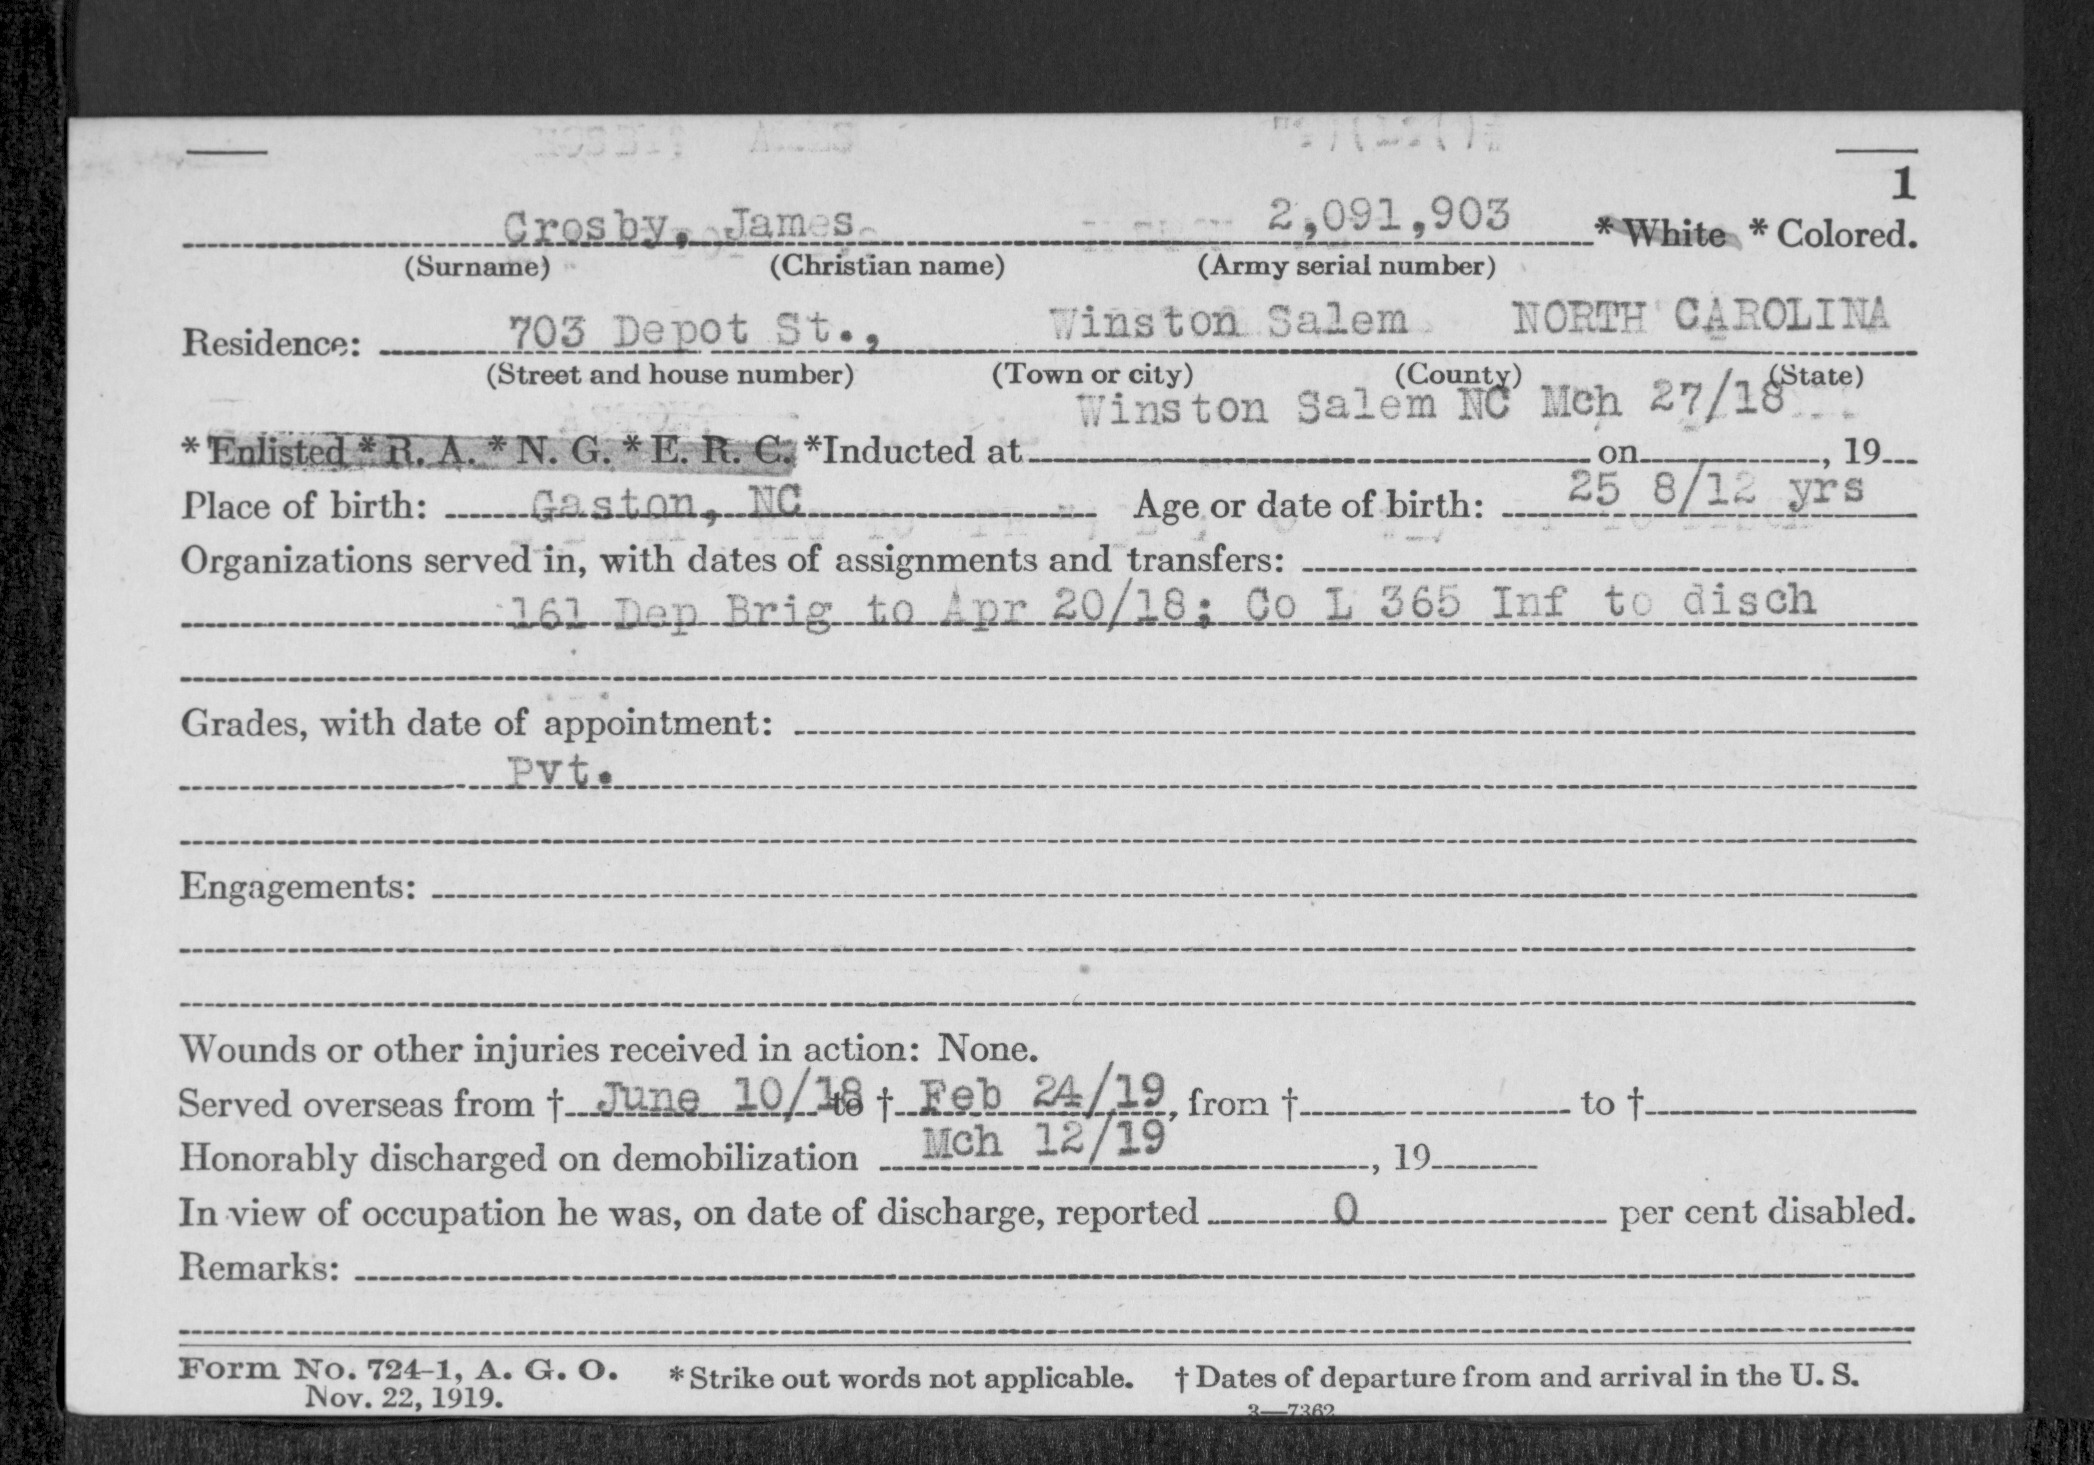 1
Crosby, James 2,091,903 * White * Colored.
(Surname) (Christian name) (Army serial number)
Residence: 703 Depot St., Winston Salem NORTH CAROLINA
(Street and house number) (Town or city) (County) (State)
Winston Salem NC Mch 27/18
* Enlisted * R. A. * N. G. * E. R. C. *Inducted at on , 19
Place of birth: Gaston, NC Age or date of birth: 25 8/12 yrs
Organizations served in, with dates of assignments and transfers:
161 Dep Brig to Apr 20/18; Co L 365 Inf to disch
Grades, with date of appointment:
Pvt.
Engagements:
Wounds or other injuries received in action: None.
Served overseas from † June 10/18 to † Feb 24/19, from † to †
Honorably discharged on demobilization Mch 12/19 , 19
In view of occupation he was, on date of discharge, reported 0 per cent disabled.
Remarks:
Form No. 724-1, A. G. O. * Strike out words not applicable. † Dates of departure from and arrival in the U. S.
Nov. 22, 1919.
3—7362